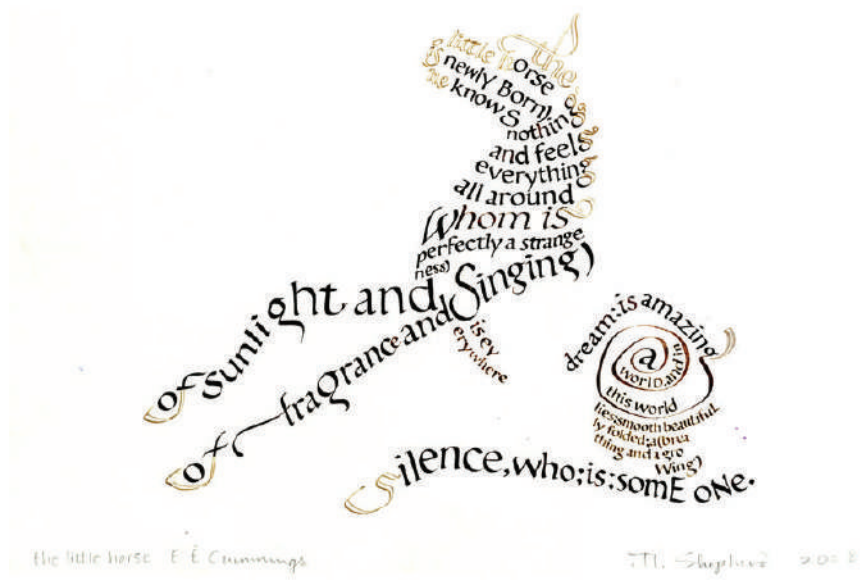 the
little horse
is newly Born)
he knows
nothing
and feels
everything
all around
Whom is
perfectly a strange
ness)
Of sunlight and
Of(fragrance and Singing)
is ev
erywhere
dream:is amazing
a
worlD.and in
this world
lies:smooth beautiful
ly folded;a(brea
thing and a gro
Wing)
silence,who;is:somE oNe.
the little horse E E Cummings